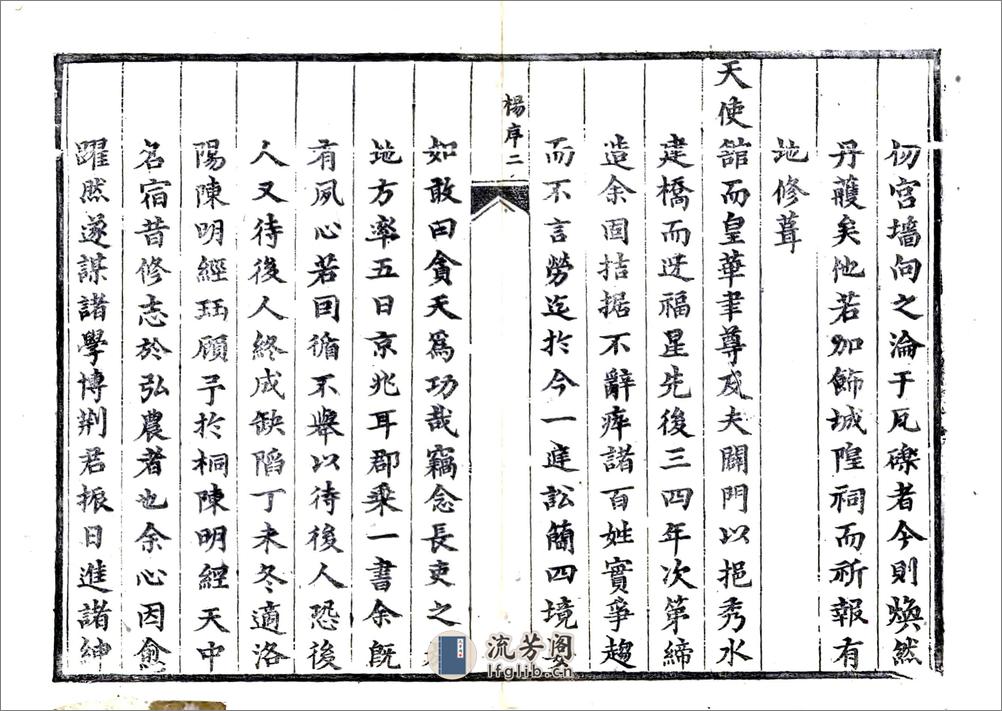 仞宮墻向之淪于瓦礫者今則煥然
丹雘矣他若加飾城隍祠而祈報有
地修葺
天使舘而皇華聿尊及夫闢門以挹秀水
建橋而迓福星先後三四年次第締
造余固拮据不辭瘁諸百姓實爭趨
而不言勞迄於今一庭訟簡四境
楊序二
如敢曰貪天爲功哉竊念長吏之
地方率五日京兆耳郡乘一書余旣
有夙心若因循不舉以待後人恐後
人又待後人終成缺陷丁未冬適洛
陽陳明經珏顧予於桐陳明經天中
名宿昔修志於弘農者也余心因愈
躍然遂謀諸學博荆君振日進諸紳
流芳阁
lfglib.cn